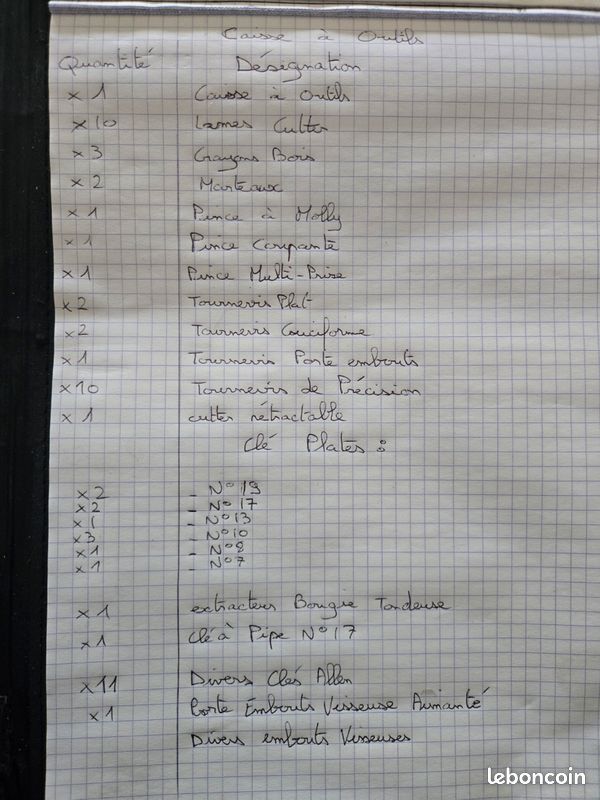 Caisse à Outils
Quantité Désignation
x 1 Caisse à Outils
x 10 Lames Cutter
x 3 Crayons Bois
x 2 Marteaux
x 1 Pince à Molly
x 1 Pince Coupante
x 1 Pince Multi-Prise
x 2 Tournevis Plat
x 2 Tournevis Cruciforme
x 1 Tournevis Porte embouts
x 10 Tournevis de Précision
x 1 cutter rétractable
Clé Plates :
x 2 - N° 19
x 2 - N° 17
x 1 - N° 13
x 3 - N° 10
x 1 - N° 8
x 1 - N° 7
x 1 extracteur Bougie Tondeuse
x 1 Clé à Pipe N° 17
x 11 Divers Clés Allen
x 1 Porte Embouts Visseuse Aimanté
Divers embouts Visseuses
leboncoin